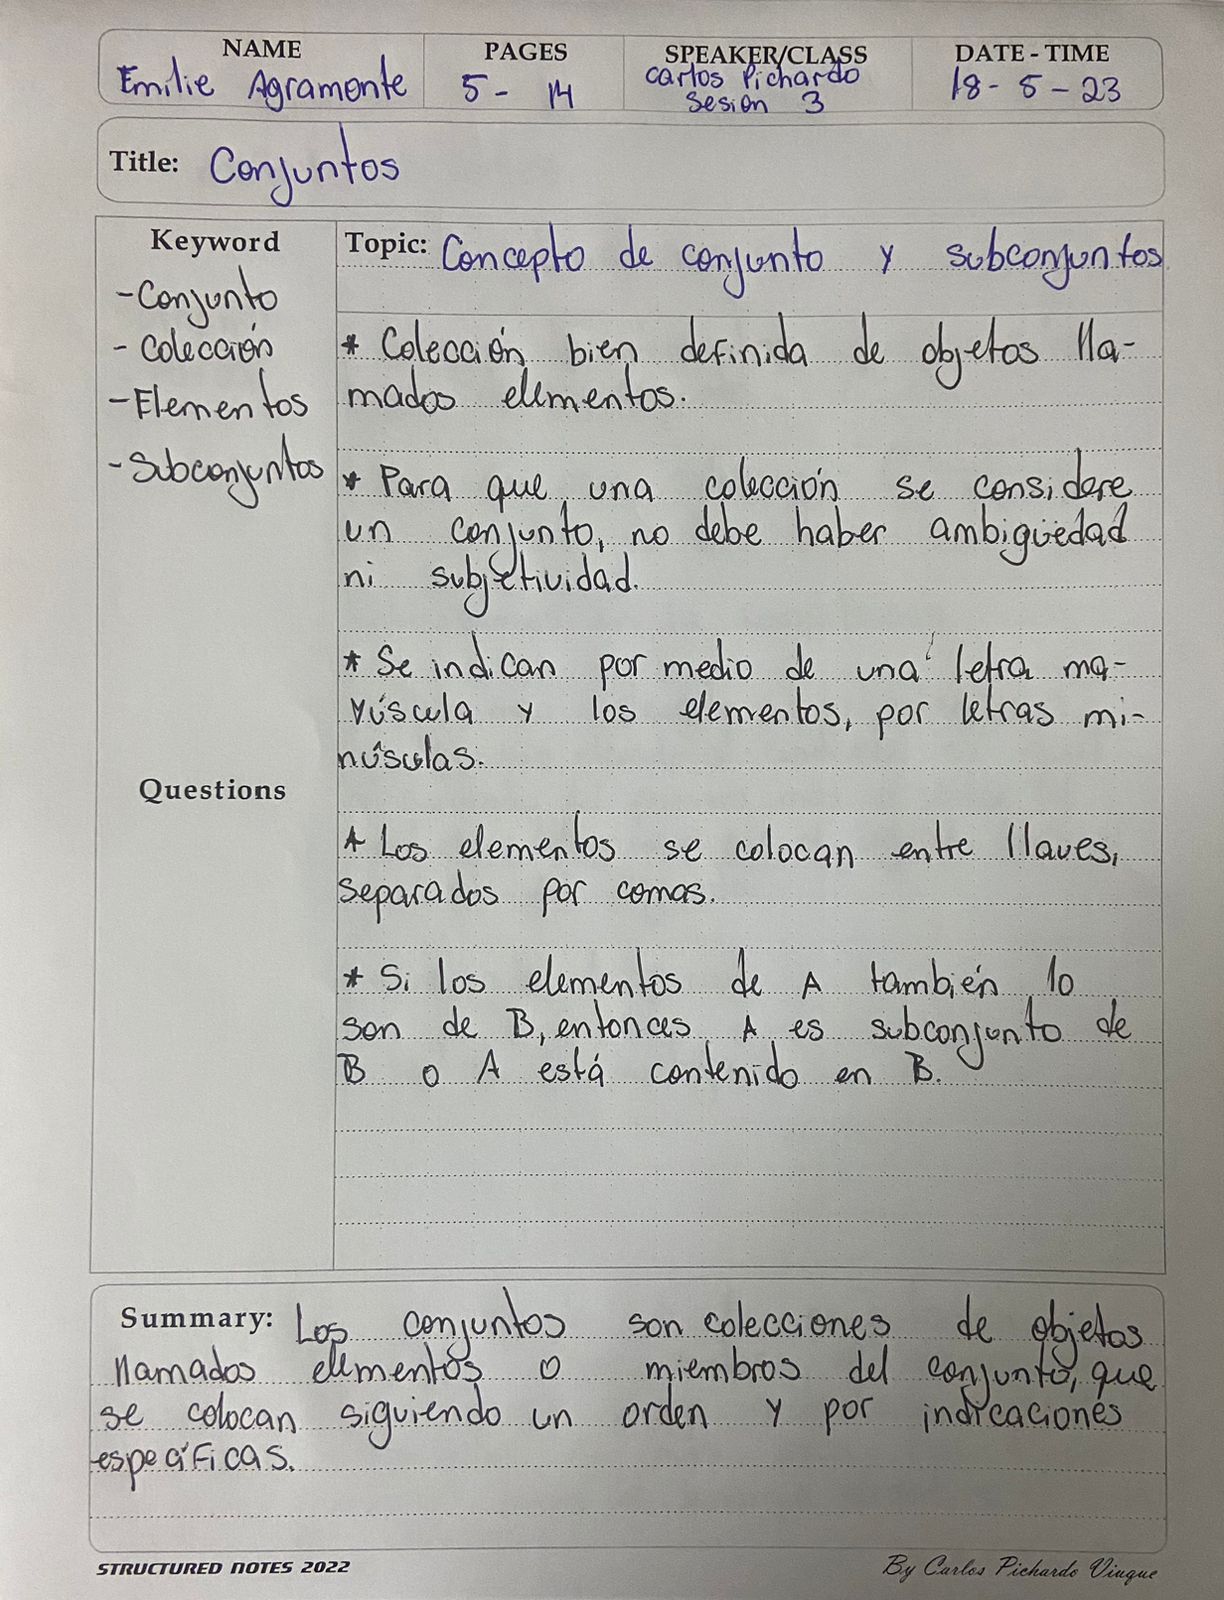 NAME PAGES SPEAKER/CLASS DATE - TIME
Emilie Agramonte 5 - 14 Carlos Pichardo 18 - 5 - 23
Sesion 3
Title: Conjuntos
Keyword
- Conjunto
- Colección
- Elementos
- Subconjuntos
Questions
Topic: Concepto de conjunto y subconjuntos
* Colección bien definida de objetos lla-
mados elementos.
* Para que una colección se considere
un conjunto, no debe haber ambigüedad
ni subjetividad.
* Se indican por medio de una letra ma-
yúscula y los elementos, por letras mi-
núsculas.
* Los elementos se colocan entre llaves,
separados por comas.
* Si los elementos de A también lo
son de B, entonces A es subconjunto de
B o A está contenido en B.
Summary: Los conjuntos son colecciones de objetos
llamados elementos o miembros del conjunto, que
se colocan siguiendo un orden y por indicaciones
específicas.
STRUCTURED NOTES 2022 By Carlos Pichardo Viuque